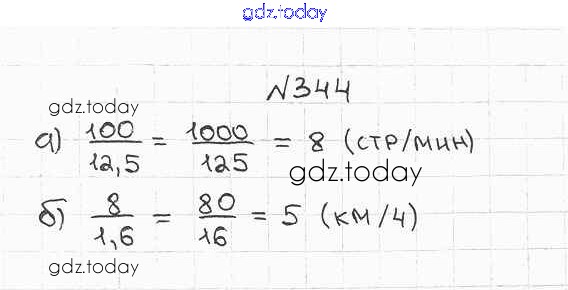 gdz.today
№344
gdz.today
а) 100/12,5 = 1000/125 = 8 (стр/мин)
gdz.today
б) 8/1,6 = 80/16 = 5 (км/ч)
gdz.today